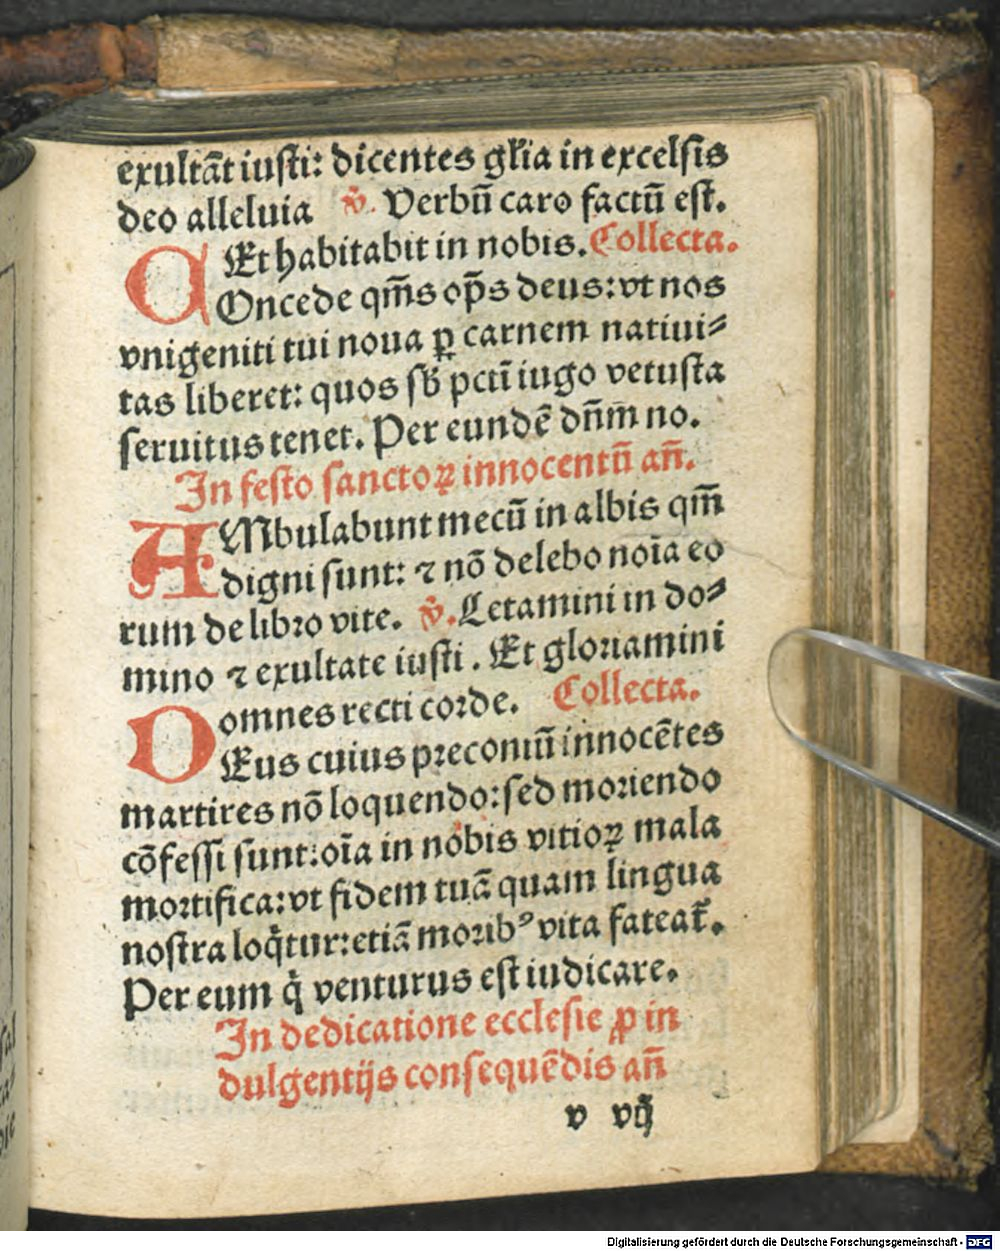 exultāt iusti: dicentes gl'ia in excelsis
deo alleluia v̄. Verbū caro factū est.
Et habitabit in nobis. Collecta.
COncede qm̄s op̄s deus: vt nos
vnigeniti tui noua ꝑ carnem natiui⸗
tas liberet: quos sb̄ pctī iugo vetusta
seruitus tenet. Per eundē dn̄m no.
In festo sanctoꝝ innocentū an̄.
AMbulabunt mecū in albis qm̄
digni sunt: ⁊ nō delebo noīa eo
rum de libro vite. v̄. Letamini in do⸗
mino ⁊ exultate iusti. Et gloriamini
omnes recti corde. Collecta.
DEus cuius preconiū innocētes
martires nō loquendo: sed moriendo
cōfessi sunt: oīa in nobis vitioꝝ mala
mortifica: vt fidem tuā quam lingua
nostra loq̄tur: etiā morib⁹ vita fateat̄.
Per eum q̇ venturus est iudicare.
In dedicatione ecclesie ꝓ in
dulgentijs consequēdis an̄
v vij
Digitalisierung gefördert durch die Deutsche Forschungsgemeinschaft - DFG